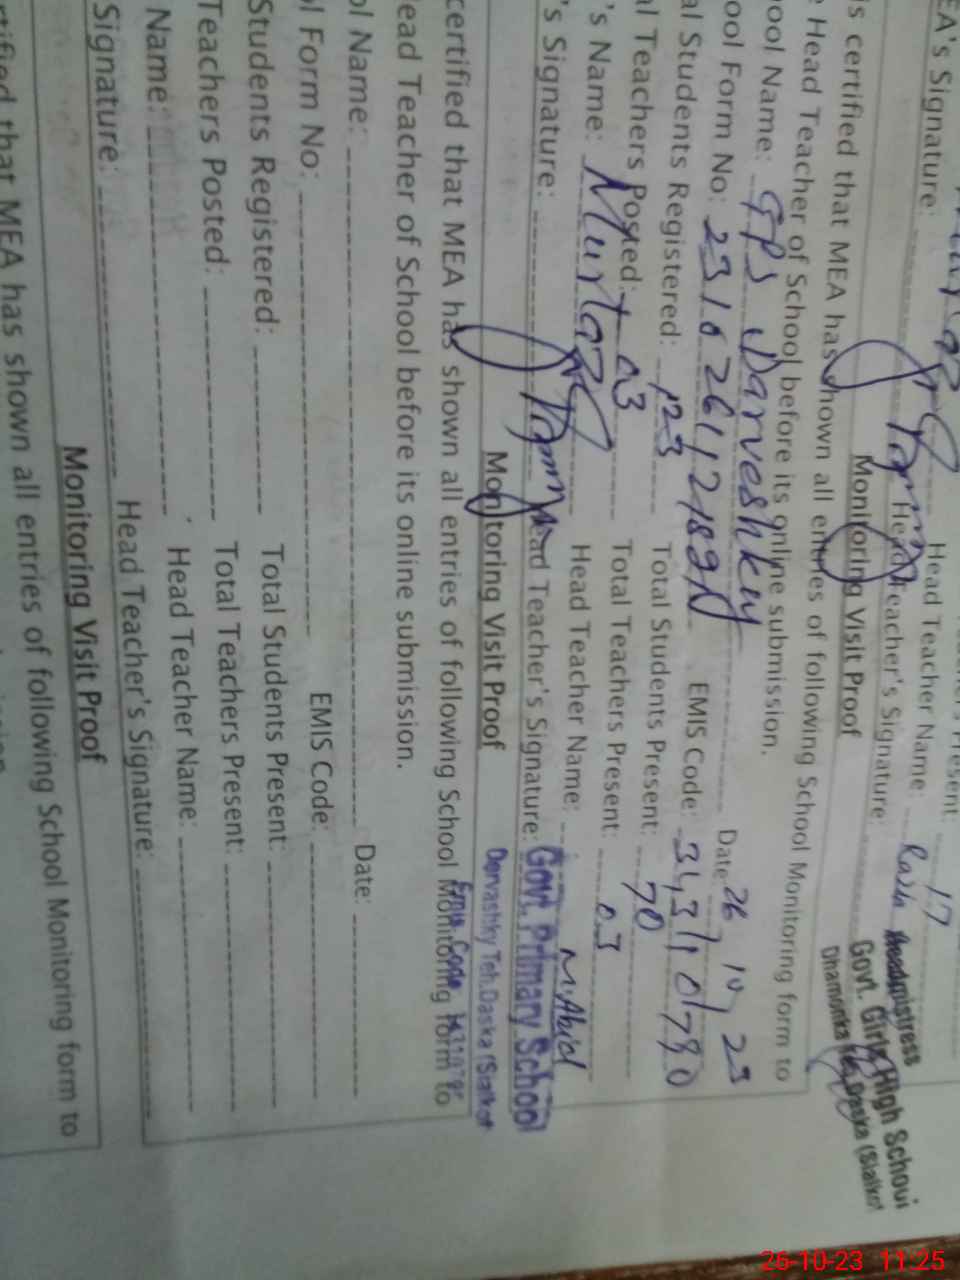 Present: 17
Head Teacher Name: Razia
EA's Signature: Head Teacher's Signature:
Headmistress
Govt. Girls High School
Dhamonka Teh. Daska (Sialkot
Monitoring Visit Proof
is certified that MEA has shown all entries of following School Monitoring form to
Head Teacher of School before its online submission.
ool Name: GPS Darveshky Date: 26 10 23
ool Form No: EMIS Code: 34310780
al Students Registered: 123 Total Students Present: 70
al Teachers Posted: 03 Total Teachers Present: 03
's Name: Murtaza Head Teacher Name: M. Abid
's Signature: Head Teacher's Signature:
Govt. Primary School
Dervashky Teh. Daska (Sialkot
Emis Code
Monitoring Visit Proof
certified that MEA has shown all entries of following School Monitoring form to
ead Teacher of School before its online submission.
ol Name: Date:
ol Form No: EMIS Code:
Students Registered: Total Students Present:
Teachers Posted: Total Teachers Present:
Name: Head Teacher Name:
Signature: Head Teacher's Signature:
Monitoring Visit Proof
rtified that MEA has shown all entries of following School Monitoring form to
26-10-23 11:25